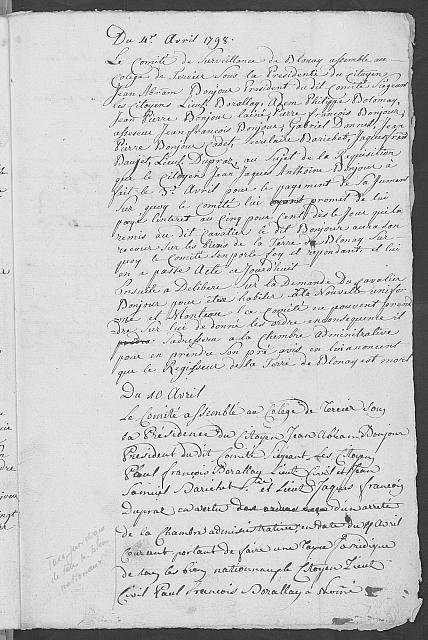 Du 4e Avril 1798.
Le Comité de Surveillance de Blonay assemblé au
Colege de Tercier Sous la Presidence du Citoyen
Jean Abram Bonjour President du dit Comité Siegeant
les Citoyens Lieut Borallay, Adem Philippe Bolomay,
Jean Pierre Bonjour lainé, Pierre François Bonjour,
assesseur Jean François Bonjour, Gabriel Bonnet, Jean
Pierre Bonjour Cadet, Secretaire Barichet, Jaques
Baujet, Lieut Dupraz, au Sujet de la Requisition
que le Citoyen Jean Jaques Anthoine Bonjour a
fait le Avril pour le payement de Sa Jument
Sur quoy le Comité lui promet de lui
paye l'interet au Cinq pour Cent dès le Jour qui l'a
remis au dit Cavalier le dit Bonjour aura son
recour sur les biens de la Terre de Blonay Sur
quoy le Comité Sen porte foy et repondants et lui
en a passé Acte ce Jourd'huit
Ensuite a Deliberé Sur la Demande Du Cavalier
Bonjour pour être habiler a la Nouvelle unifor
me et Manteau le Comité ne peuvent prend
dre Sur lui de donne les ordre en consequence il
Sadressera a la Chambre administrative
pour en prendre Son pré avis en lui anoncent
que le Regisseur de la Terre de Blonay est mort
Du 10 Avril
Le Comité assemblé au Colège de Tercier Sous
la Présidence du Citoyen Jean Abram Bonjour
President du dit Comité Siégeant Les Citoyen
Paul François Borallay Lieut Civil et Jean
Samuel Barichet S.re et Lieut Jaques François
Dupraz en vertu d'un arreté
de la Chambre administrative en date du 9 Avril
Courant portant de faire une Taxe Juridique
de tous les bien nationaux le Citoyen Lieut
Civil Paul François Borallay a nomé
nationaux